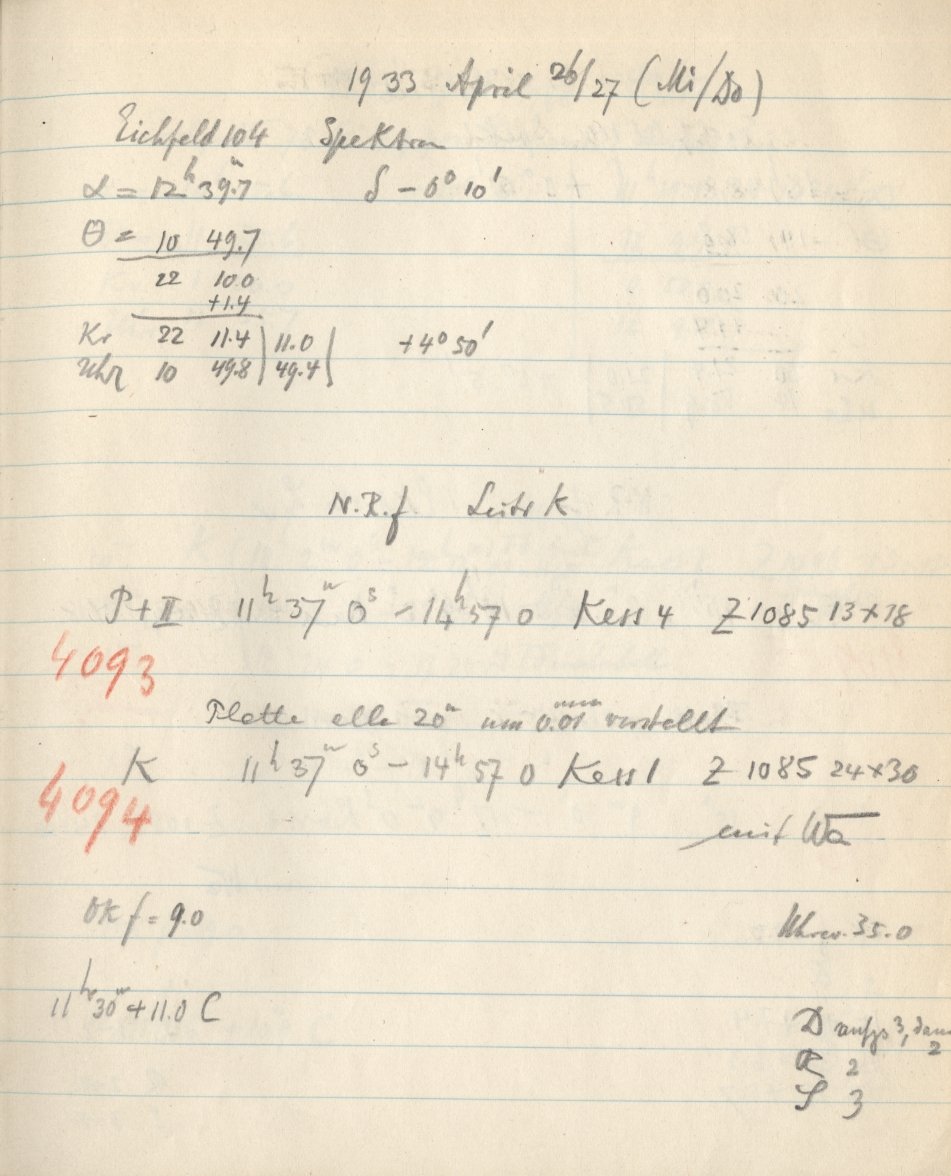 1933 April 26/27 (Mi/Do)
Eichfeld 104 Spektren
α = 12h 39.m7 δ - 6° 10'
θ = 10 49.7
22 10.0
+1.4
Kr 22 11.4 | 11.0 +4° 50'
Uhr 10 49.8 | 49.4
N.R.f Leitr K
P+II 11h 37m 0s - 14h 57 0 Kess 4 Z 1085 13x18
4093
Platte alle 20m um 0.01mm verstellt
K 11h 37m 0s - 14h 57 0 Kess 1 Z 1085 24x30
4094
mit Wa
Ok f = 9.0
Uhrw. 35.0
11h 30m + 11.0 C
D anfgs 3, dann 2
R 2
S 3